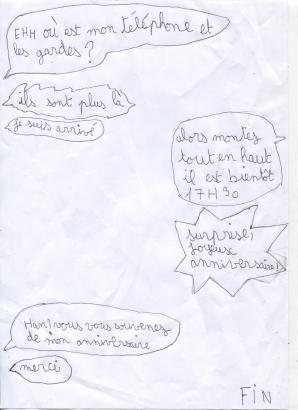 EHH où est mon téléphone et
les gardes ?
ils sont plus là
je suis arrivé
alors montez
tout en haut
il est bientôt
17H30
surprise !
Joyeux
anniversaire !
Han ! vous vous souvenez
de mon anniversaire
merci
FIN